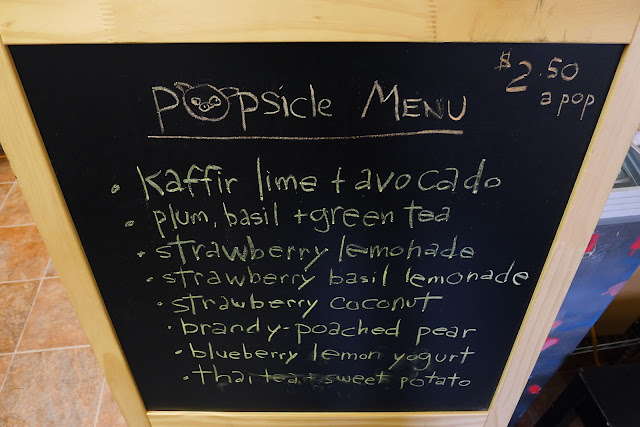 Popsicle Menu
$2.50
a pop
• kaffir lime + avocado
• plum, basil + green tea
• strawberry lemonade
• strawberry basil lemonade
• strawberry coconut
• brandy-poached pear
• blueberry lemon yogurt
• thai tea + sweet potato